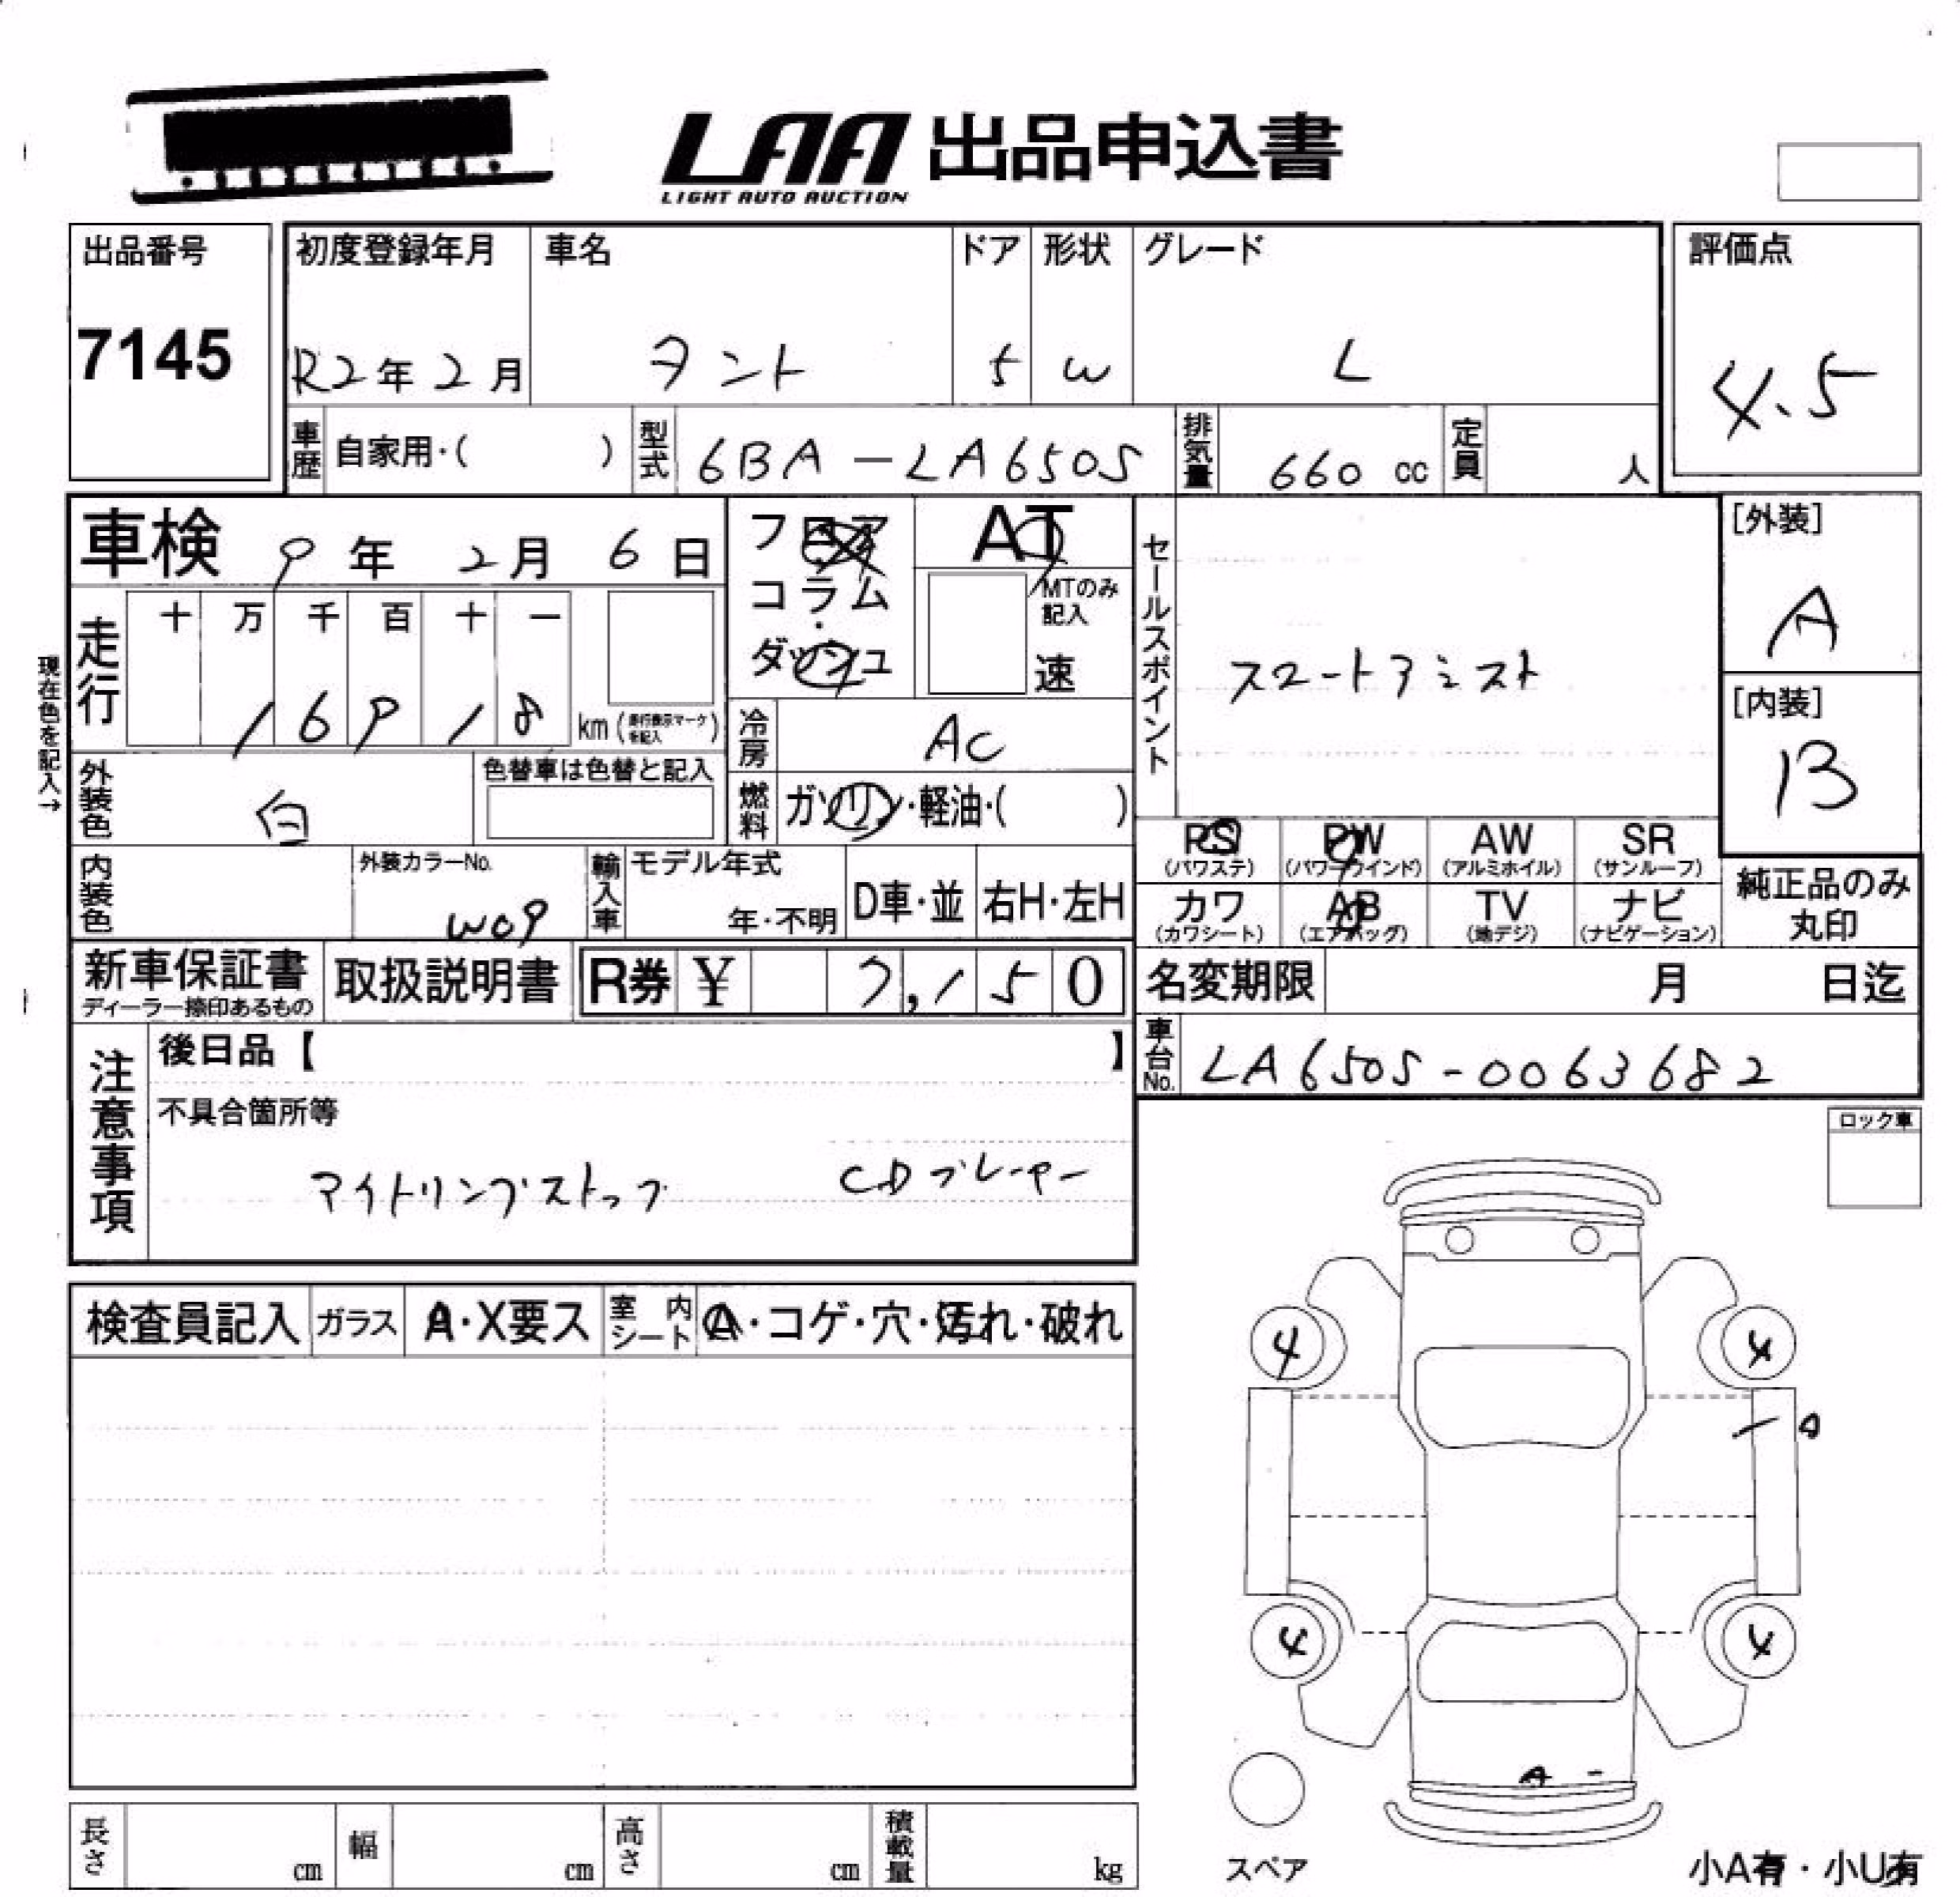 LAA 出品申込書
LIGHT AUTO AUCTION
出品番号
7145
初度登録年月
R2年2月
車名
タント
ドア
5
形状
W
グレード
L
評価点
4.5
車歴 自家用・( )
型式 6BA-LA650S
排気量 660 cc
定員 人
車検 9年2月6日
フロア
・
コラム
・
ダッシュ
AT
MTのみ記入
速
セールスポイント
スマートアシスト
[外装]
A
[内装]
B
現在色を記入→
走行
十 万 千 百 十 一
1 6 9 1 8 km (走行表示マークを記入)
冷房 AC
外装色 白
色替車は色替と記入
燃料 ガソリン・軽油・( )
PS (パワステ)
PW (パワーウインド)
AW (アルミホイル)
SR (サンルーフ)
カワ (カワシート)
AB (エアバッグ)
TV (地デジ)
ナビ (ナビゲーション)
純正品のみ
丸印
内装色
外装カラーNo.
W09
輸入車 モデル年式
年・不明
D車・並
右H・左H
新車保証書
ディーラー捺印あるもの
取扱説明書
R券 ¥ 7,150
名変期限 月 日迄
車台No. LA650S-0063682
注意事項
後日品【 】
不具合箇所等
アイドリングストップ CDプレーヤー
ロック車
検査員記入 ガラス A・X要ス 室内シート A・コゲ・穴・汚れ・破れ
4 4
A
4 4
A
スペア
小A有・小U有
長さ cm 幅 cm 高さ cm 積載量 kg